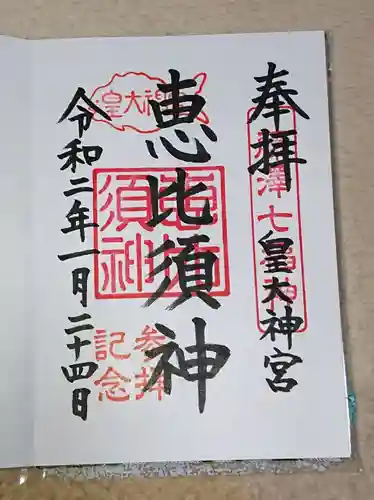 奉拝
藤澤七福神
皇大神宮
皇大神宮
恵比須神
恵比須神
参拝記念
令和二年一月二十四日